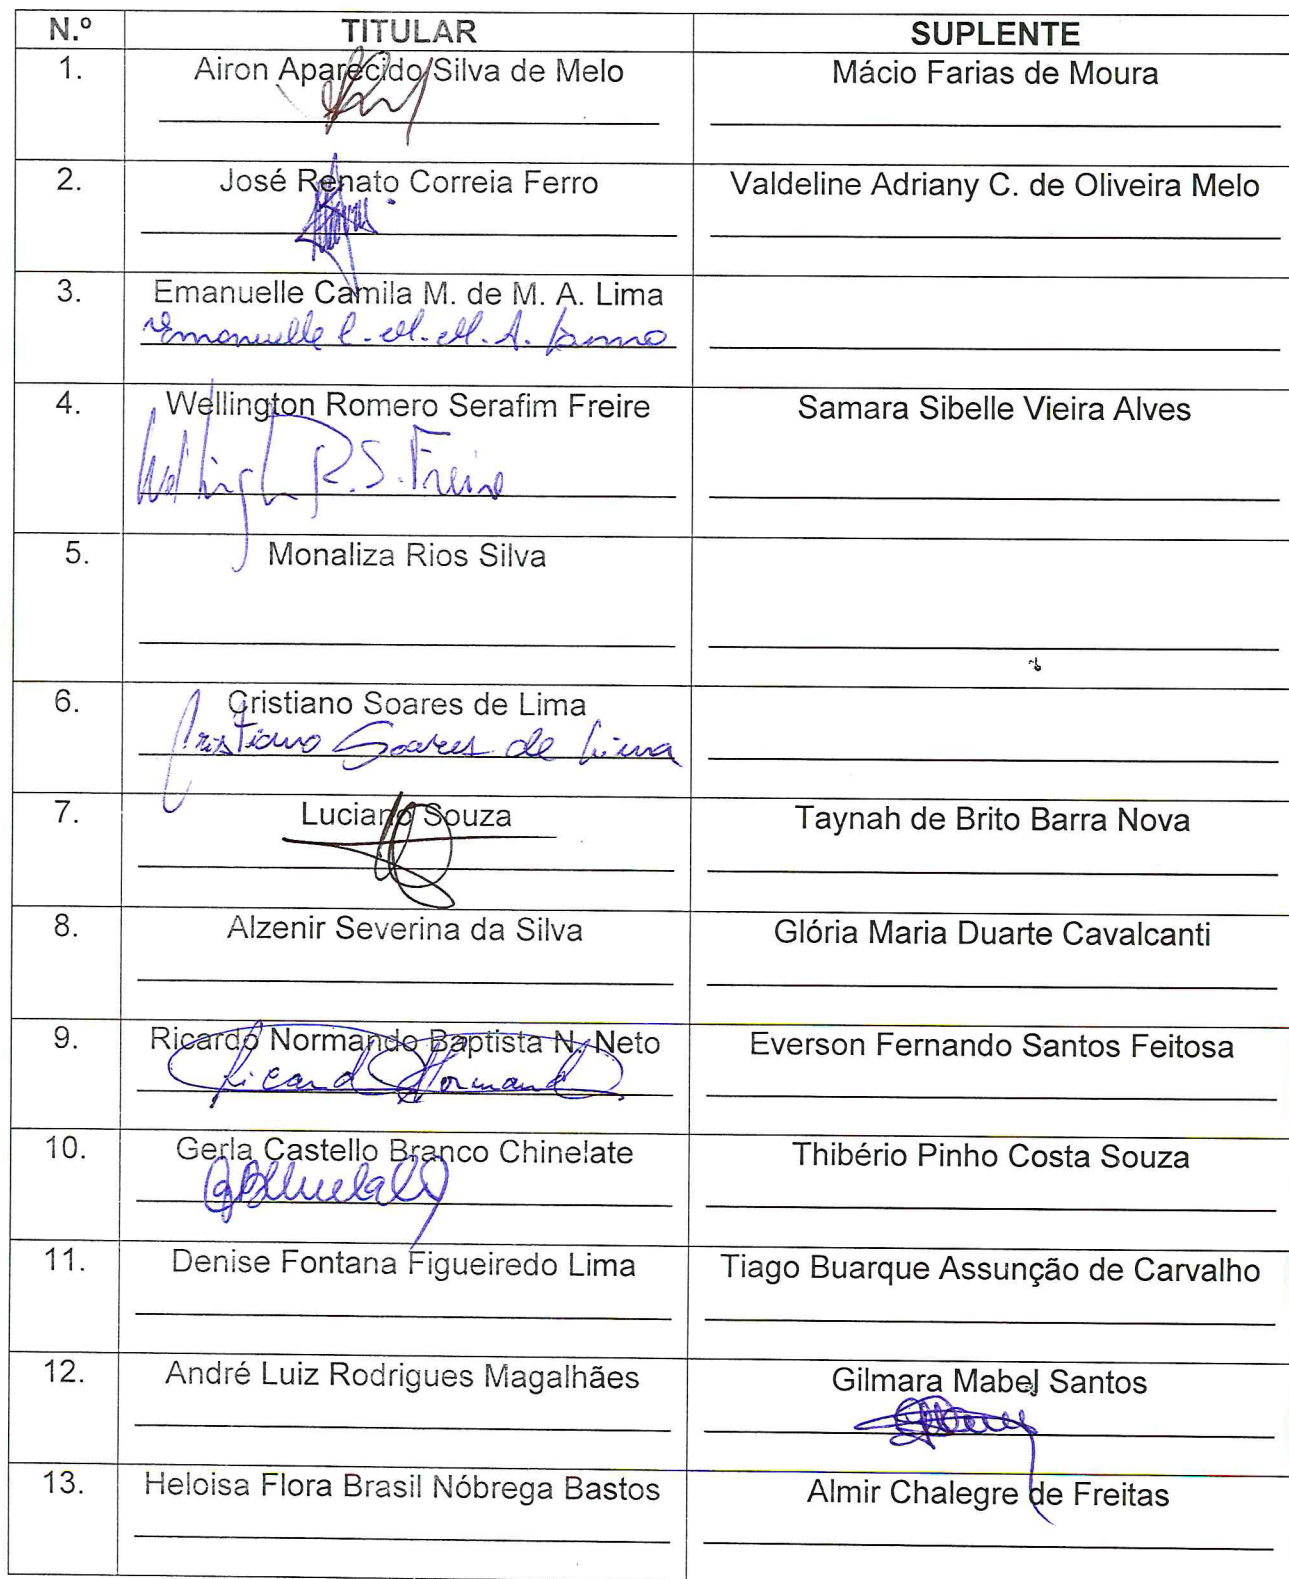 N.º TITULAR SUPLENTE
1. Airon Aparecido Silva de Melo Mácio Farias de Moura
2. José Renato Correia Ferro Valdeline Adriany C. de Oliveira Melo
3. Emanuelle Camila M. de M. A. Lima
Emanuelle C. M. M. A. Lima
4. Wellington Romero Serafim Freire Samara Sibelle Vieira Alves
Wellington R. S. Freire
5. Monaliza Rios Silva
6. Cristiano Soares de Lima
Cristiano Soares de Lima
7. Luciano Souza Taynah de Brito Barra Nova
8. Alzenir Severina da Silva Glória Maria Duarte Cavalcanti
9. Ricardo Normando Baptista N. Neto Everson Fernando Santos Feitosa
Ricardo Normando
10. Gerla Castello Branco Chinelate Thibério Pinho Costa Souza
11. Denise Fontana Figueiredo Lima Tiago Buarque Assunção de Carvalho
12. André Luiz Rodrigues Magalhães Gilmara Mabel Santos
13. Heloisa Flora Brasil Nóbrega Bastos Almir Chalegre de Freitas